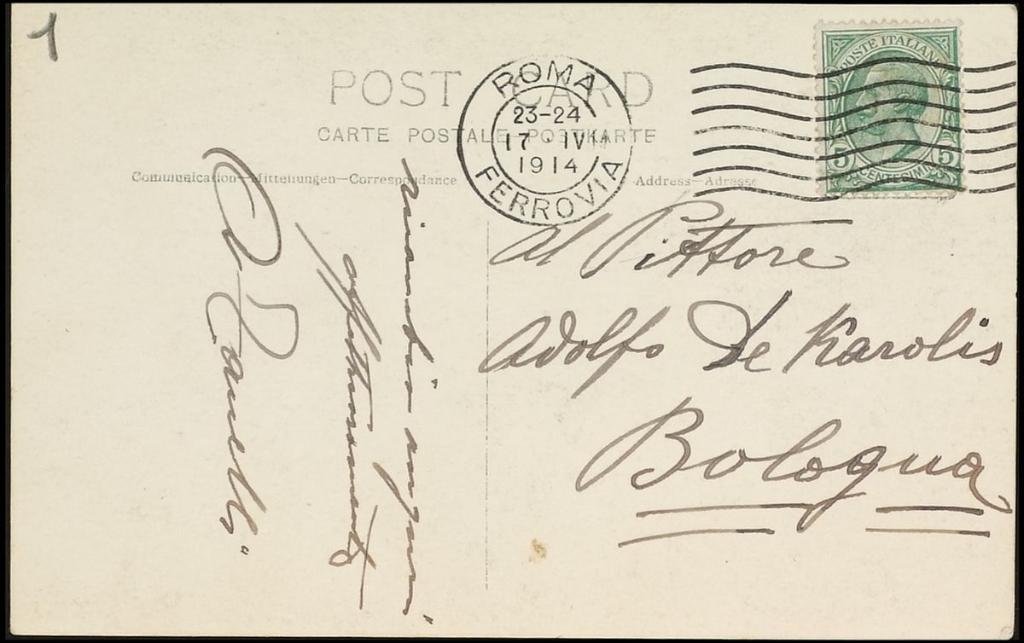 1
POST CARD
CARTE POSTALE—POSTKARTE
Communication—Mitteilungen—Correspondance
Address—Adresse
ROMA
23-24
17 · IV
1914
FERROVIA
POSTE ITALIANE
5 CENTESIMI 5
Al Pittore
Adolfo De Karolis
Bologna
ricambio auguri
affettuosamente